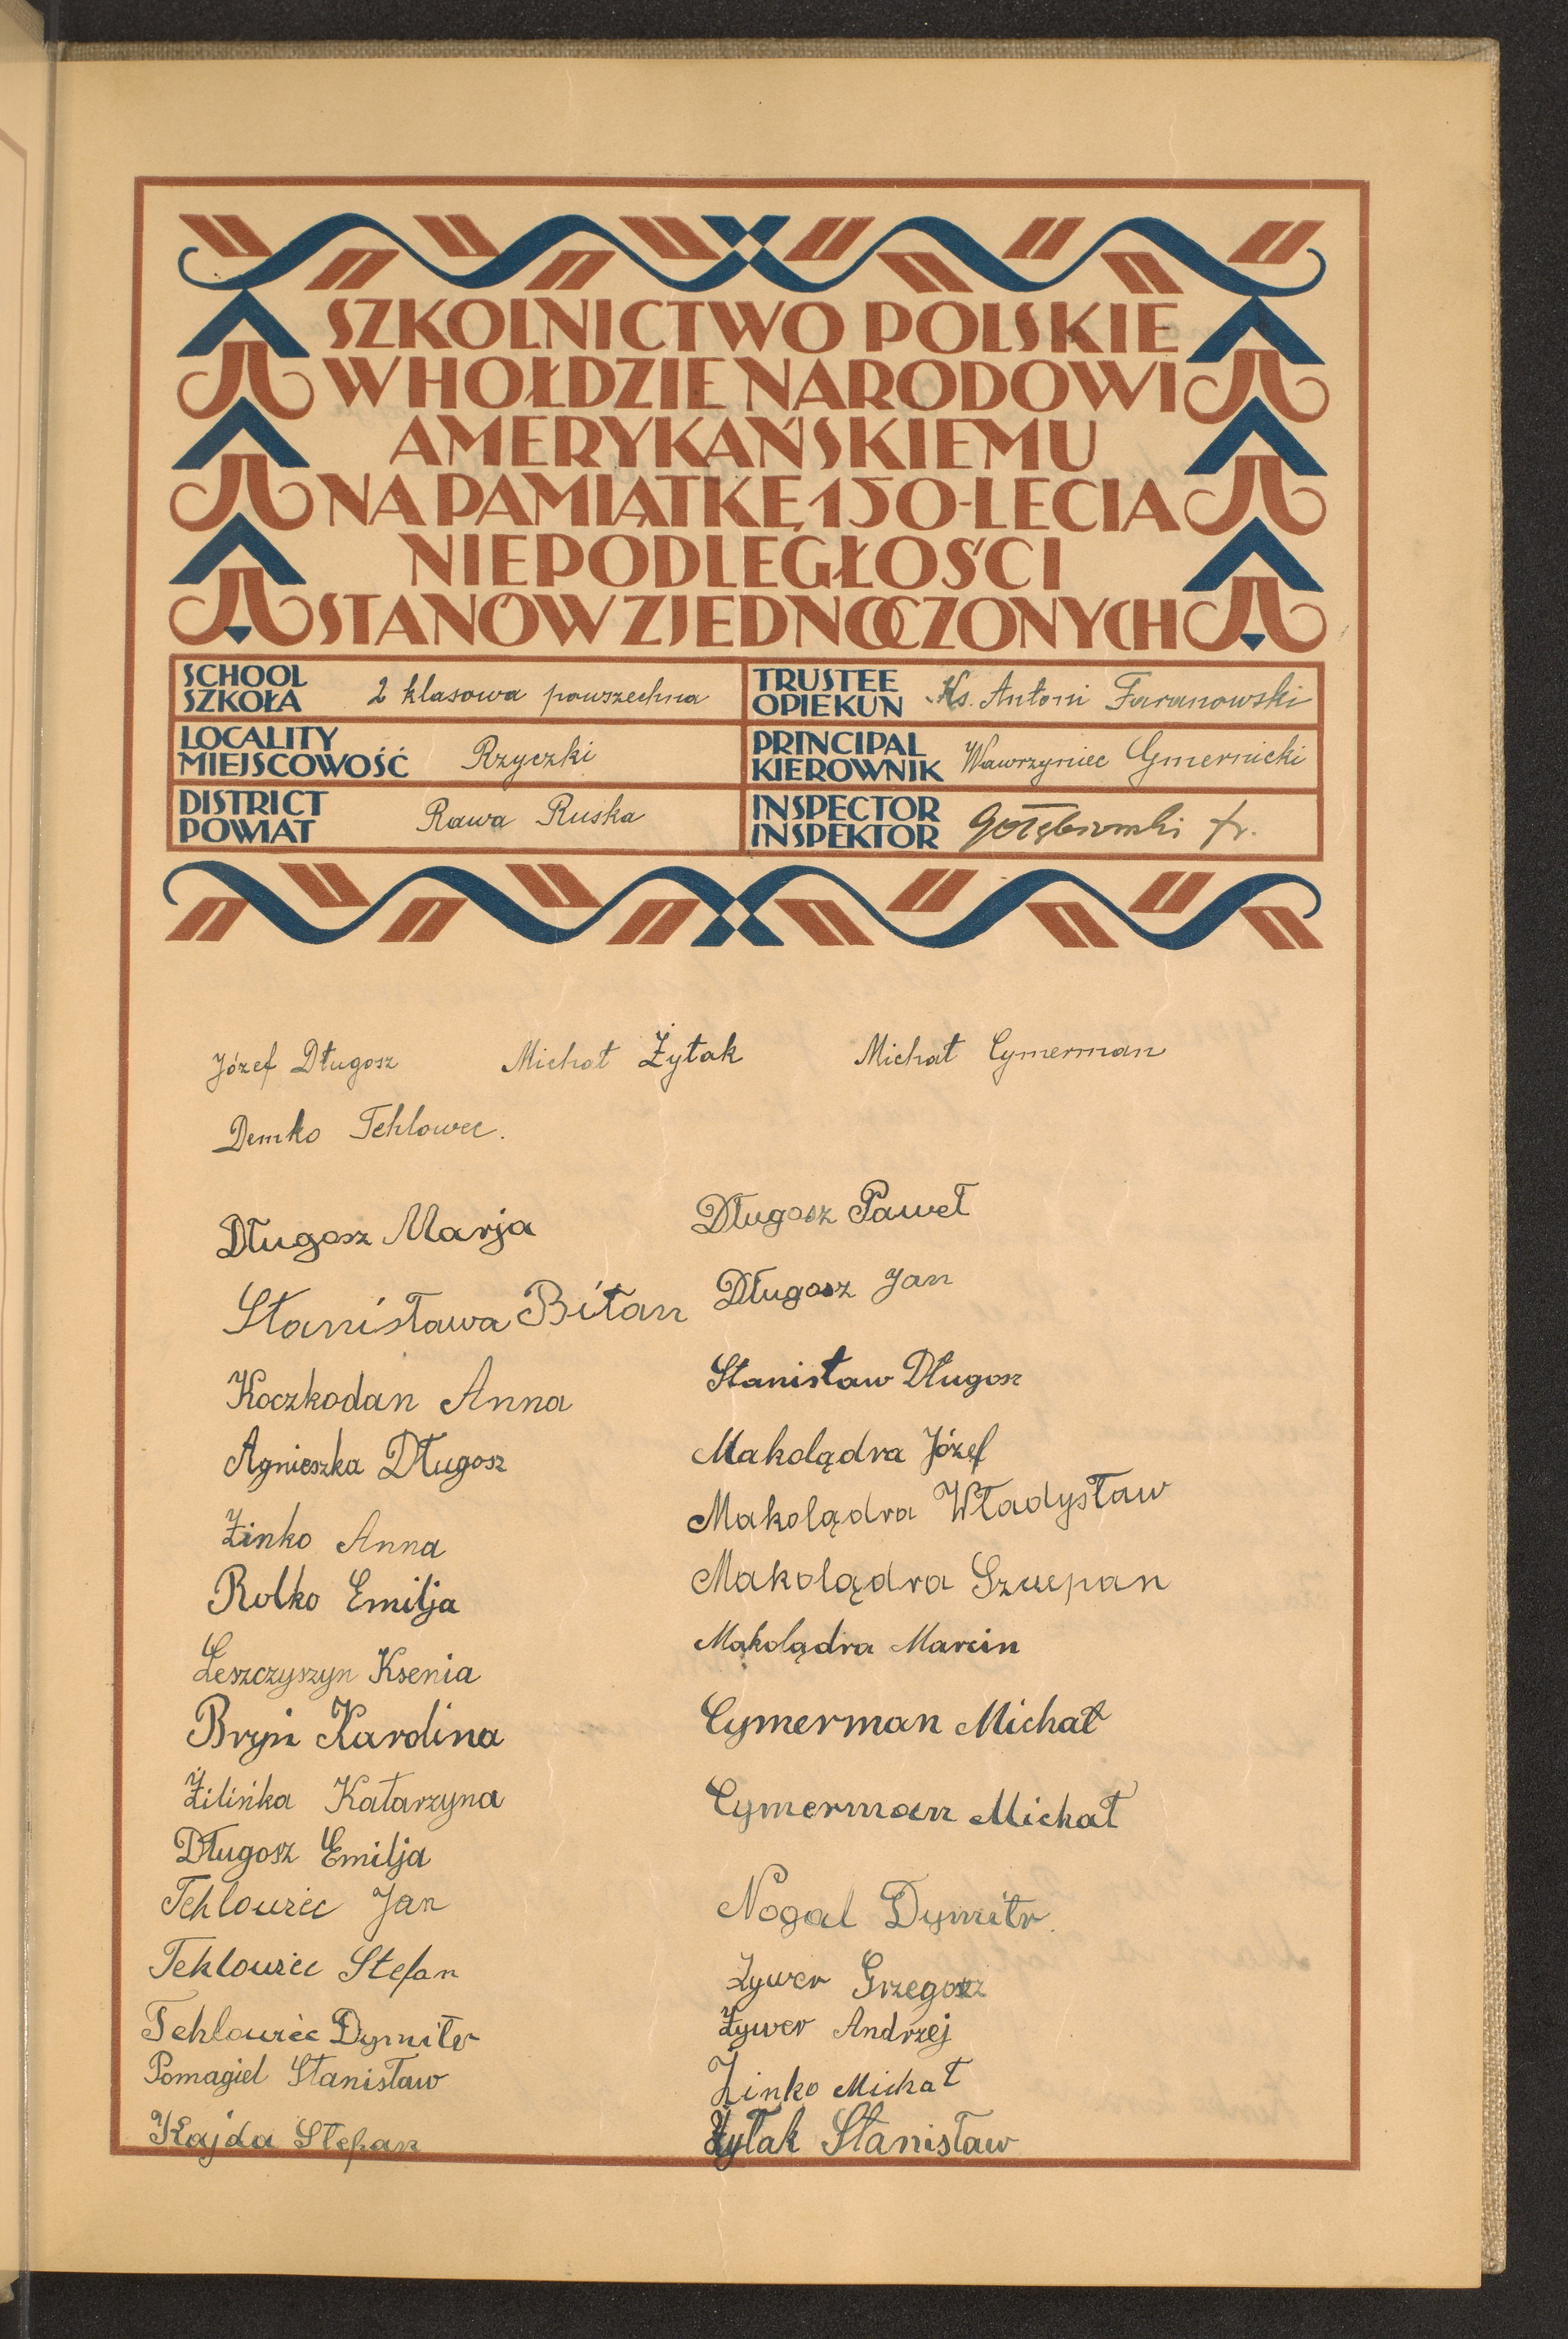 SZKOLNICTWO POLSKIE
W HOŁDZIE NARODOWI
AMERYKAŃSKIEMU
NA PAMIĄTKĘ 150-LECIA
NIEPODLEGŁOŚCI
STANÓW ZJEDNOCZONYCH
SCHOOL
SZKOŁA 2 klasowa powszechna
TRUSTEE
OPIEKUN Ks. Antoni Faranowski
LOCALITY
MIEJSCOWOŚĆ Rzyczki
PRINCIPAL
KIEROWNIK Wawrzyniec Gmernicki
DISTRICT
POWIAT Rawa Ruska
INSPECTOR
INSPEKTOR Gołębiowski fr.
Józef Długosz Michał Żytak Michał Cymerman
Demko Tehlowec.
Długosz Marja
Stanisława Bitan
Koczkodan Anna
Agnieszka Długosz
Żinko Anna
Rolko Emilja
Leszczyszyn Ksenia
Bryń Karolina
Żilińka Katarzyna
Długosz Emilja
Tehlowiec Jan
Teklowiec Stefan
Tehlowiec Dymitr
Pomagiel Stanisław
Kajda Stefan
Długosz Paweł
Długosz Jan
Stanisław Długosz
Makolądra Józef
Makolądra Władysław
Makolądra Szczepan
Makolądra Marcin
Cymerman Michał
Cymerman Michał
Nogal Dymitr.
Żywer Grzegorz
Żywer Andrzej
Żinko Michał
Żytak Stanisław